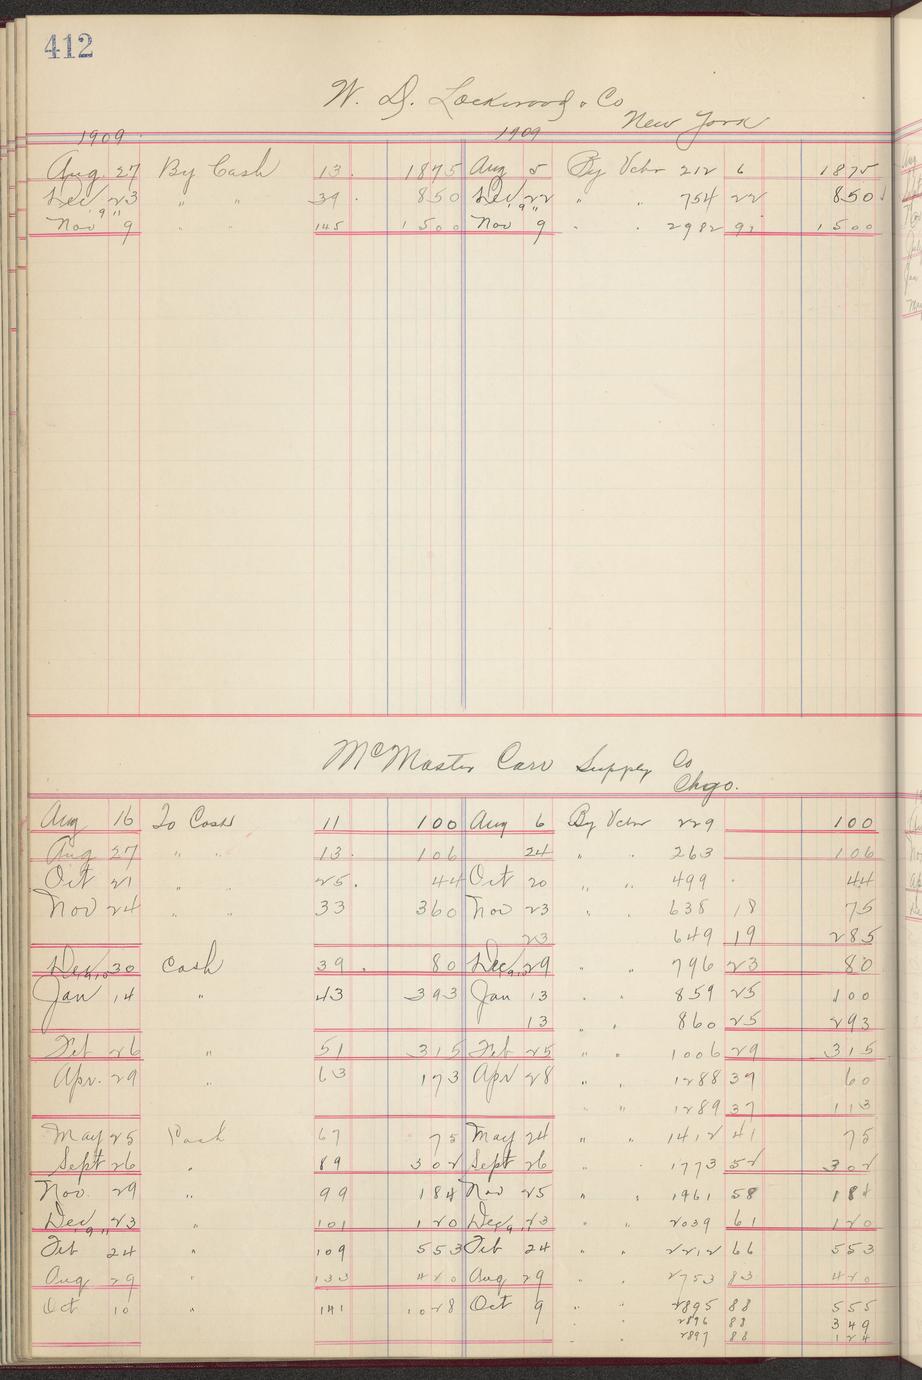 412
W. D. Lockwood & Co
New York
1909 1909
Aug 27 By Cash 13 . 1875 Aug 5 By Vchr 212 6 1875
Dec 23 " " 39 . 850 Dec 22 " " 754 22 850
' 9 " ' 9 "
Nov 9 " " 145 1500 Nov 9 " " 2982 92 1500
McMaster Carr Supply Co
Chgo.
Aug 16 To Cash 11 100 Aug 6 By Vchr 229 100
Aug 27 " " 13 . 106 24 " " 263 106
Oct 21 " " 25 . 44 Oct 20 " " 499 44
Nov 24 " " 33 360 Nov 23 " " 638 18 75
23 649 19 285
Dec 30 Cash 39 . 80 Dec 29 " " 796 23 80
Jan 14 " 43 393 Jan 13 " " 859 25 100
13 " " 860 25 293
Feb 26 " 51 315 Feb 25 " " 1006 29 315
Apr. 29 " 63 173 Apr 28 " " 1288 37 60
" " 1289 37 113
May 25 Cash 67 75 May 24 " " 1412 41 75
Sept 26 " 89 302 Sept 26 " " 1773 52 302
Nov. 29 " 99 184 Nov 25 " " 1961 58 184
Dec 23 " 101 120 Dec 23 " " 2039 61 120
Feb 24 " 109 553 Feb 24 " " 2212 66 553
Aug 29 " 133 420 Aug 29 " " 2753 83 420
Oct 10 " 141 1028 Oct 9 " " 2895 88 555
" " 2896 88 349
" " 2897 88 124